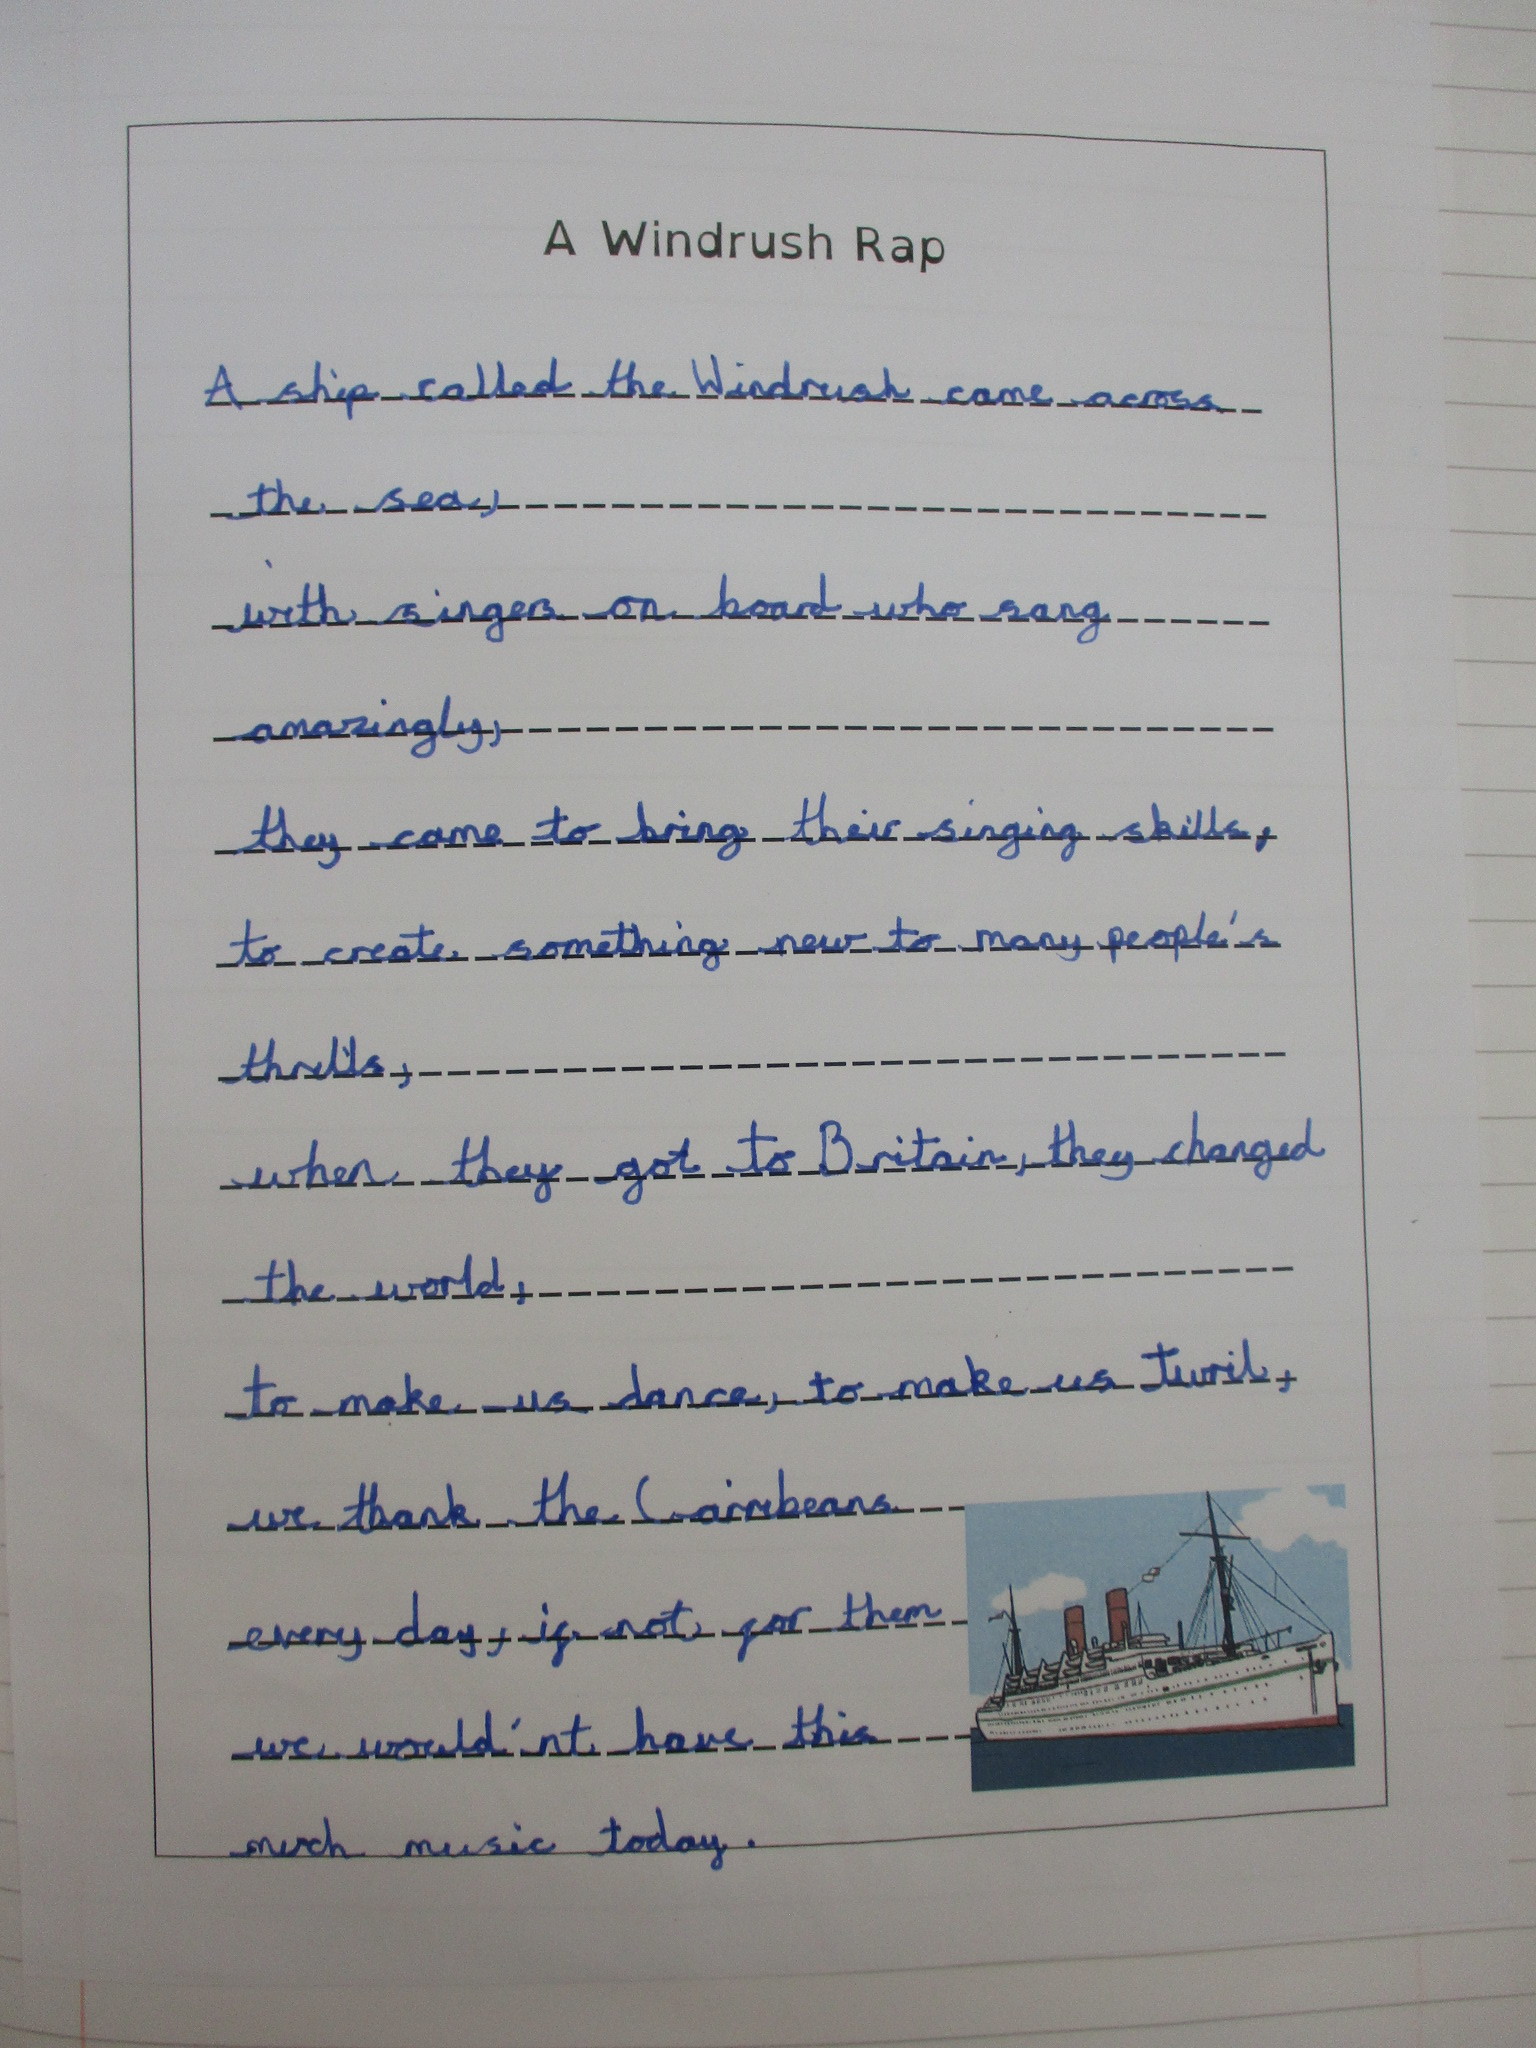 A Windrush Rap
A ship called the Windrush came across
the sea,
with singers on board who sang
amazingly,
they came to bring their singing skills,
to create something new to many people's
thrills,
when they got to Britain, they changed
the world,
to make us dance, to make us twril,
we thank the Cairrbeans
every day, if not for them
we would'nt have this
much music today.